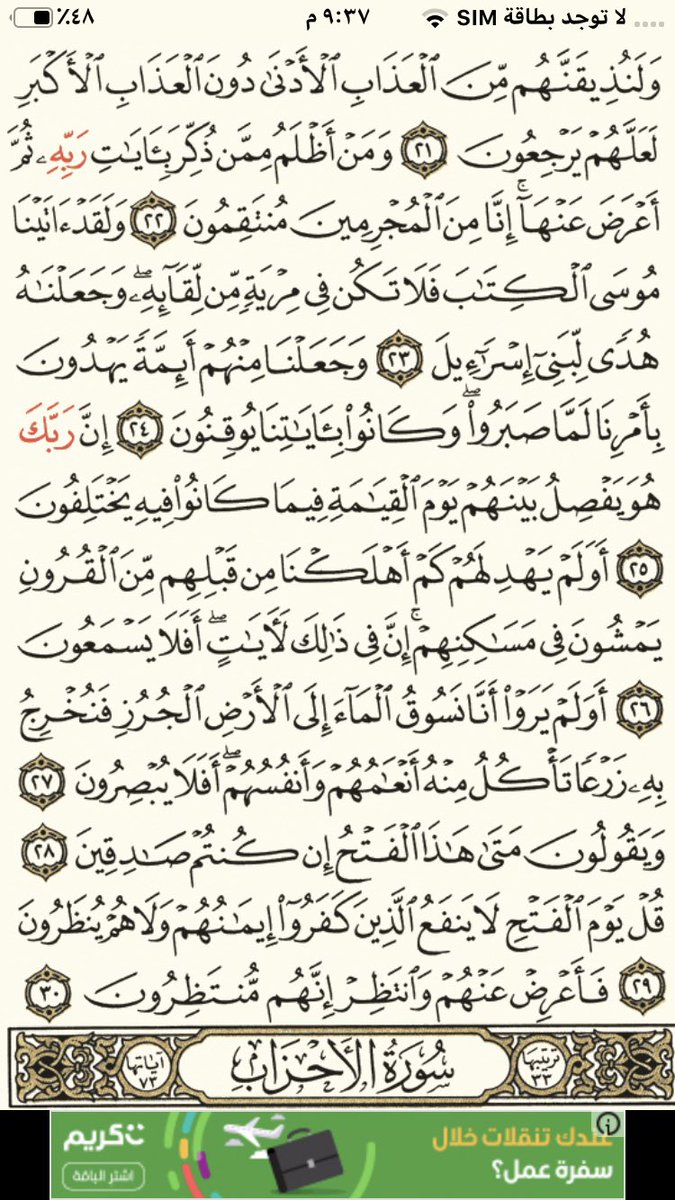 لا توجد بطاقة SIM ٩:٣٧ م ٪٤٨
وَلَنُذِيقَنَّهُم مِّنَ ٱلْعَذَابِ ٱلْأَدْنَىٰ دُونَ ٱلْعَذَابِ ٱلْأَكْبَرِ
لَعَلَّهُمْ يَرْجِعُونَ ٢١ وَمَنْ أَظْلَمُ مِمَّن ذُكِّرَ بِـَٔايَـٰتِ رَبِّهِۦ ثُمَّ
أَعْرَضَ عَنْهَآ ۚ إِنَّا مِنَ ٱلْمُجْرِمِينَ مُنتَقِمُونَ ٢٢ وَلَقَدْ ءَاتَيْنَا
مُوسَى ٱلْكِتَـٰبَ فَلَا تَكُن فِى مِرْيَةٍ مِّن لِّقَآئِهِۦ ۖ وَجَعَلْنَـٰهُ
هُدًى لِّبَنِىٓ إِسْرَٰٓءِيلَ ٢٣ وَجَعَلْنَا مِنْهُمْ أَئِمَّةً يَهْدُونَ
بِأَمْرِنَا لَمَّا صَبَرُوا۟ ۖ وَكَانُوا۟ بِـَٔايَـٰتِنَا يُوقِنُونَ ٢٤ إِنَّ رَبَّكَ
هُوَ يَفْصِلُ بَيْنَهُمْ يَوْمَ ٱلْقِيَـٰمَةِ فِيمَا كَانُوا۟ فِيهِ يَخْتَلِفُونَ
٢٥ أَوَلَمْ يَهْدِ لَهُمْ كَمْ أَهْلَكْنَا مِن قَبْلِهِم مِّنَ ٱلْقُرُونِ
يَمْشُونَ فِى مَسَـٰكِنِهِمْ ۚ إِنَّ فِى ذَٰلِكَ لَـَٔايَـٰتٍ ۖ أَفَلَا يَسْمَعُونَ
٢٦ أَوَلَمْ يَرَوْا۟ أَنَّا نَسُوقُ ٱلْمَآءَ إِلَى ٱلْأَرْضِ ٱلْجُرُزِ فَنُخْرِجُ
بِهِۦ زَرْعًا تَأْكُلُ مِنْهُ أَنْعَـٰمُهُمْ وَأَنفُسُهُمْ ۖ أَفَلَا يُبْصِرُونَ ٢٧
وَيَقُولُونَ مَتَىٰ هَـٰذَا ٱلْفَتْحُ إِن كُنتُمْ صَـٰدِقِينَ ٢٨
قُلْ يَوْمَ ٱلْفَتْحِ لَا يَنفَعُ ٱلَّذِينَ كَفَرُوٓا۟ إِيمَـٰنُهُمْ وَلَا هُمْ يُنظَرُونَ
٢٩ فَأَعْرِضْ عَنْهُمْ وَٱنتَظِرْ إِنَّهُم مُّنتَظِرُونَ ٣٠
ترتيبها ٣٣ سُورَةُ الأَحْزَابِ آياتها ٧٣
عندك تنقلات خلال
سفرة عمل؟
كريم
اشتر الباقة